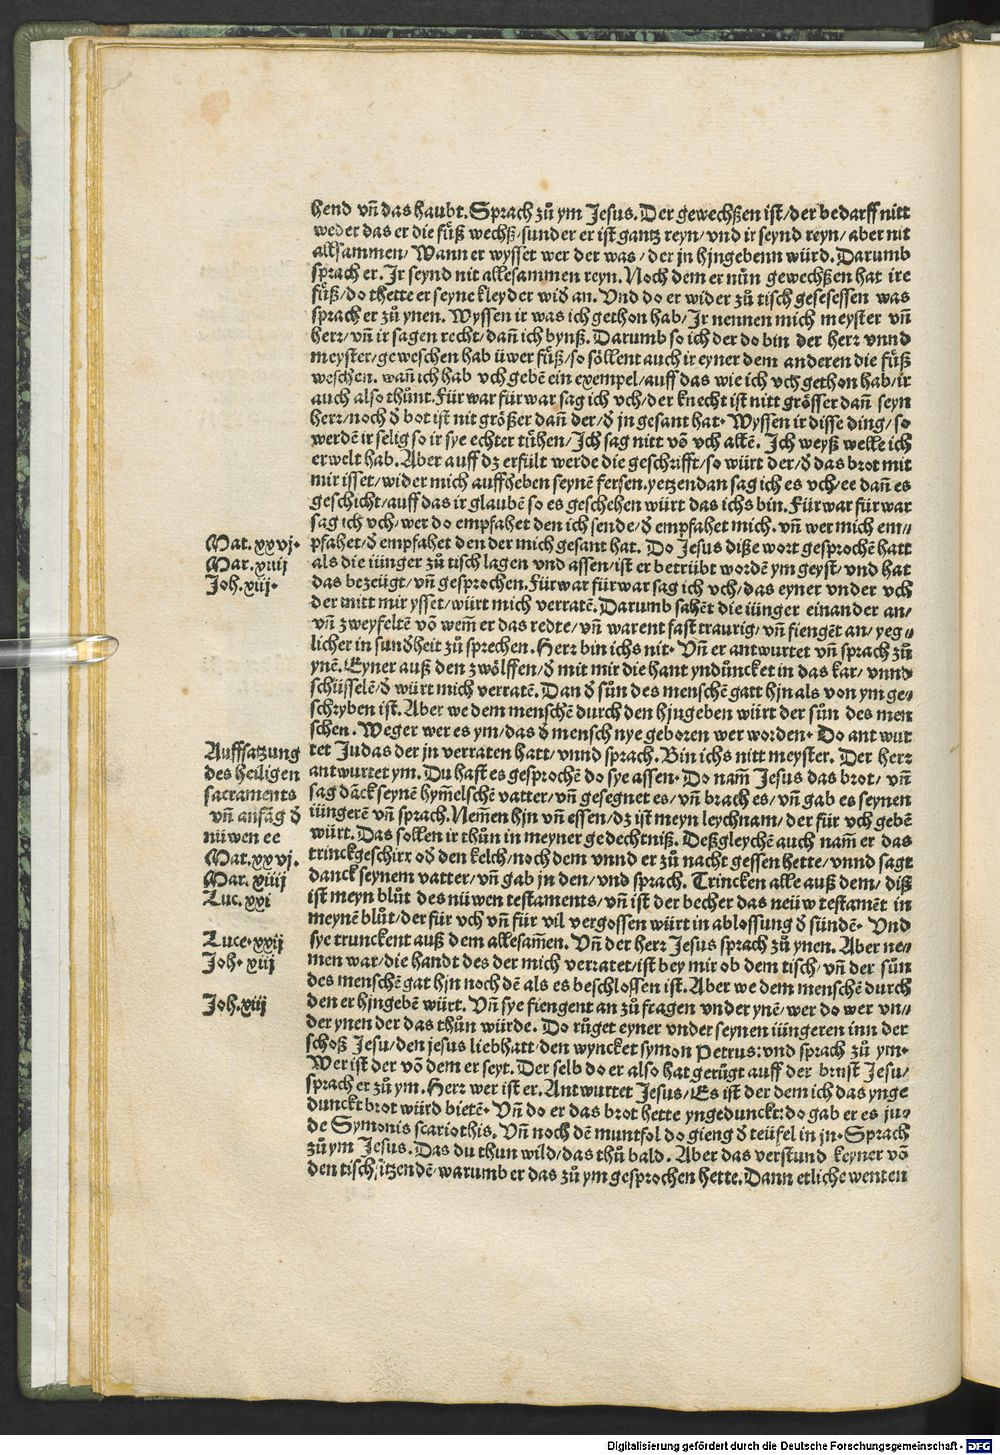 hend vñ das haubt. Sprach zů ym Jesus. Der gewechßen ist/ der bedarff nitt
weder das er die fůß wechß/ sunder er ist gantz reyn/ vnd ir seynd reyn/ aber nit
allsammen/ Wann er wysset wer der was/ der jn hjngebenn würd. Darumb
sprach er. Jr seynd nit allesammen reyn. Noch dem er nůn gewechßen hat ire
fůß/ do thette er seyne kleyder wid̕ an. Vnd do er wider zů tisch gesesessen was
sprach er zů ynen. Wyssen ir was ich gethon hab/ Jr nennen mich meyster vñ
herr/ vñ ir sagen recht/ dañ ich bynß. Darumb so ich der do bin der herr vnnd
meyster/ geweschen hab üwer fůß/ so söllent auch ir eyner dem anderen die fůß
weschen. wañ ich hab vch gebē ein exempel/ auff das wie ich vch gethon hab/ ir
auch also thůnt. Für war für war sag ich vch/ der knecht ist nitt grösser dañ seyn
herr/ noch d̕ bot ist nit größer dañ der/ d̕ jn gesant hat. Wyssen ir disse ding/ so
werdē ir selig so ir sye echter tůhen/ Jch sag nitt vō vch allē. Jch weyß welle ich
erwelt hab. Aber auff dz erfült werde die geschrifft/ so würt der/ d̕ das brot mit
mir isset/ wider mich auffheben seynē fersen. yetzendan sag ich es vch/ ee dañ es
geschicht/ auff das ir glaubē so es geschehen würt das ichs bin. Fürwar fürwar
sag ich vch/ wer do empfahet den ich sende/ d̕ empfahet mich. vñ wer mich em//
Mat. xxvj.
pfahet/ d̕ empfahet den der mich gesant hat. Do Jesus diße wort gesprochē hatt
Mar. xiiij
als die iünger zů tisch lagen vnd assen/ ist er betrübt wordē ym geyst/ vnd hat
Joh. xiij.
das bezeügt/ vñ gesprochen. Fürwar fürwar sag ich vch/ das eyner vnder vch
der mitt mir ysset/ würt mich verratē. Darumb sahēt die iünger einander an/
vñ zweyfeltē vō wem̃ er das redte/ vñ warent fast traurig/ vñ fiengēt an/ yeg//
licher in sund̕heit zů sprechen. Herr bin ichs nit. Vñ er antwurtet vñ sprach zů
ynē. Eyner auß den zwölffen/ d̕ mit mir die hant yndüncket in das kar/ vnnd
schüsselē/ d̕ würt mich verratē. Dan d̕ sůn des menschē gatt hjn als von ym ge//
schryben ist. Aber we dem menschē durch den hjngeben würt der sůn des men
schen. Weger wer es ym/ das d̕ mensch nye geboren wer worden. Do ant wur
Auffsatzung
tet Judas der jn verraten hatt/ vnnd sprach. Bin ichs nitt meyster. Der herr
des heiligen
antwurtet ym. Du hast es gesprochē do sye assen. Do nam̃ Jesus das brot/ vñ
sacraments
sag dāck seynē hym̃elschē vatter/ vñ gesegnet es/ vñ brach es/ vñ gab es seynen
vñ anfāg d̕
iüngerē vñ sprach. Nem̃en hjn vñ essen/ dz ist meyn leychnam/ der für vch gebē
nüwen ee
würt. Das sollen ir thůn in meyner gedechtniß. Deßgleychē auch nam̃ er das
Mat. xxvj.
trinckgeschirr od̕ den kelch/ noch dem vnnd er zů nacht gessen hette/ vnnd sagt
Mar. xiiij
danck seynem vatter/ vñ gab jn den/ vnd sprach. Trincken alle auß dem/ diß
Luc. xxi
ist meyn blůt des nüwen testaments/ vñ ist der becher das neüw testamēt in
meynē blůt/ der für vch vñ für vil vergossen würt in ablossung d̕ sündē. Vnd
Luce. xxij
sye trunckent auß dem allesam̃en. Vñ der herr Jesus sprach zů ynen. Aber ne//
Joh. xiij
men war/ die handt des der mich verratet/ ist bey mir ob dem tisch/ vñ der sůn
des menschē gat hjn noch dē als es beschlossen ist. Aber we dem menschē durch
Joh. xiij
den er hjngebē würt. Vñ sye fiengent an zů fragen vnder ynē/ wer do wer vn//
der ynen der das thůn würde. Do růget eyner vnder seynen iüngeren inn der
schoß Jesu/ den jesus liebhatt/ den wyncket symon Petrus: vnd sprach zů ym.
Wer ist der vō dem er seyt. Der selb do er also hat gerůgt auff der brust Jesu/
sprach er zů ym. Herr wer ist er. Antwurtet Jesus/ Es ist der dem ich das ynge
dunckt brot würd bietē. Vñ do er das brot hette yngedunckt: do gab er es ju//
de Symonis scariothis. Vñ noch dē muntfol do gieng d̕ teüfel in jn. Sprach
zů ym Jesus. Das du thun wild/ das thů bald. Aber das verstund keyner vō
den tisch sitzendē/ warumb er das zů ym gesprochen hette. Dann etliche wenten
Digitalisierung gefördert durch die Deutsche Forschungsgemeinschaft - DFG